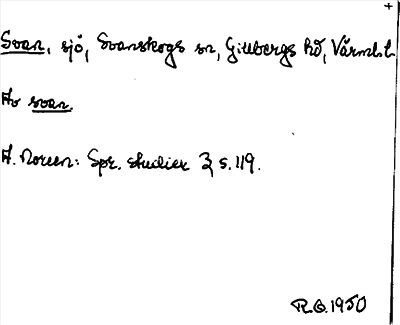 +
Svan, sjö, Svanskogs sn, Gillbergs hd, Värml. l.
Av svan.
A. Noreen: Spr. studier 3 s. 119.
R.G. 1950